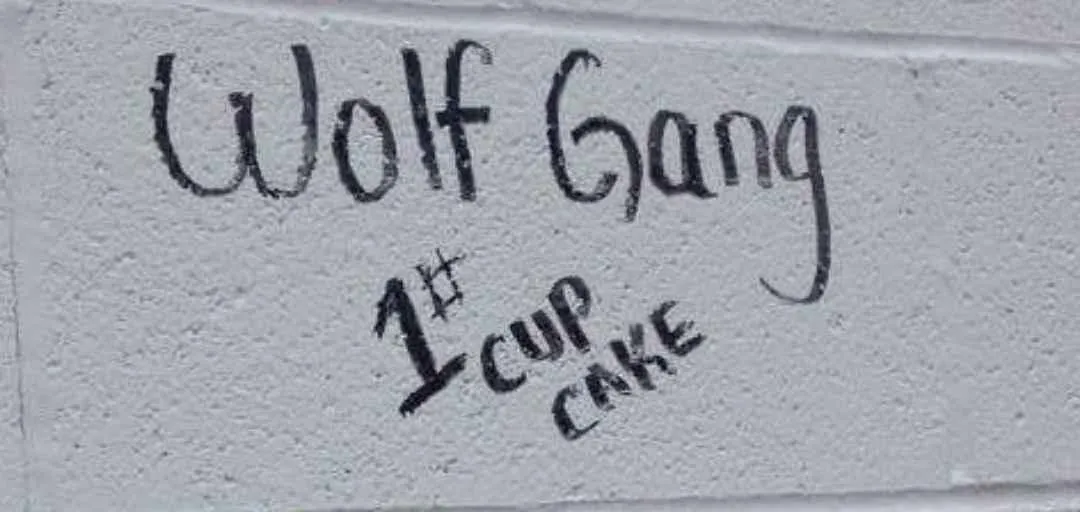 Wolf Gang
1# CUP
CAKE